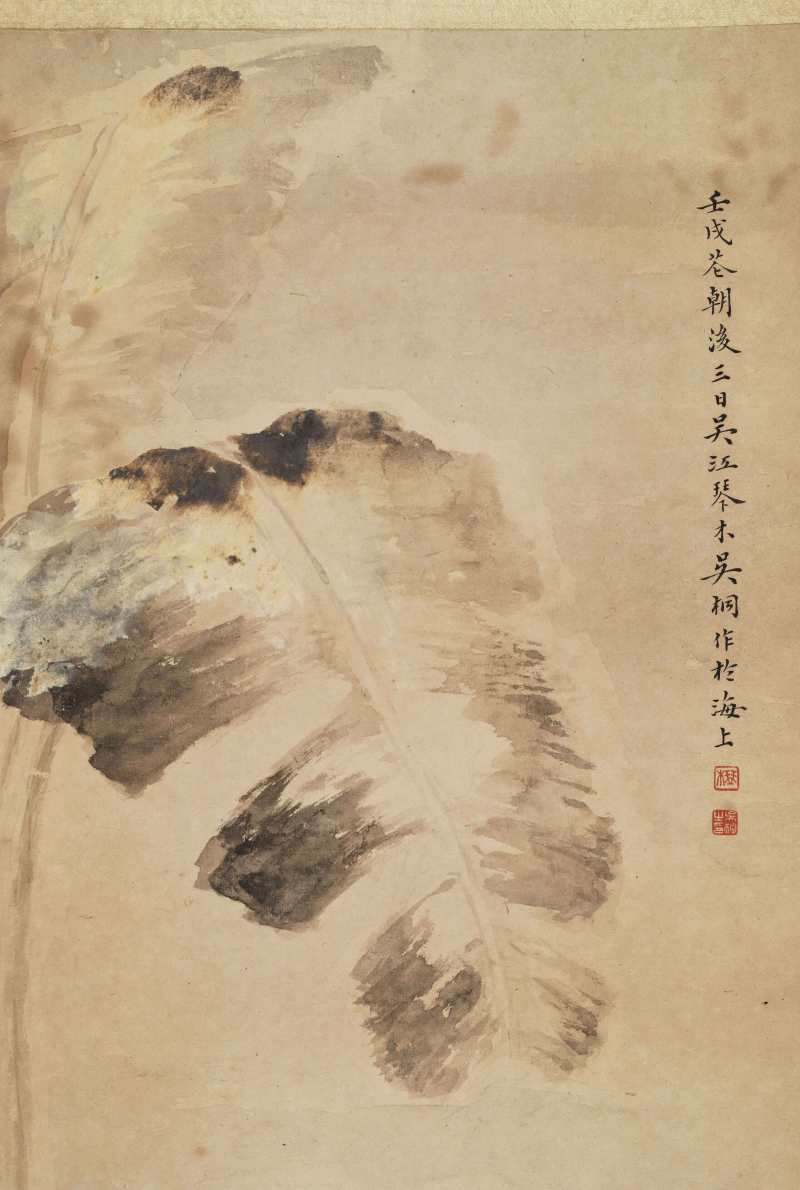 壬戌花朝後三日吴江琴木吴桐作於海上